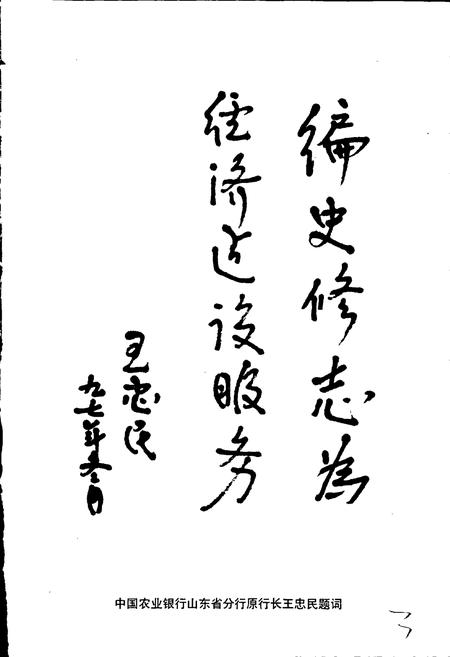 编史修志为
经济建设服务
王忠民
九七年冬月
中国农业银行山东省分行原行长王忠民题词